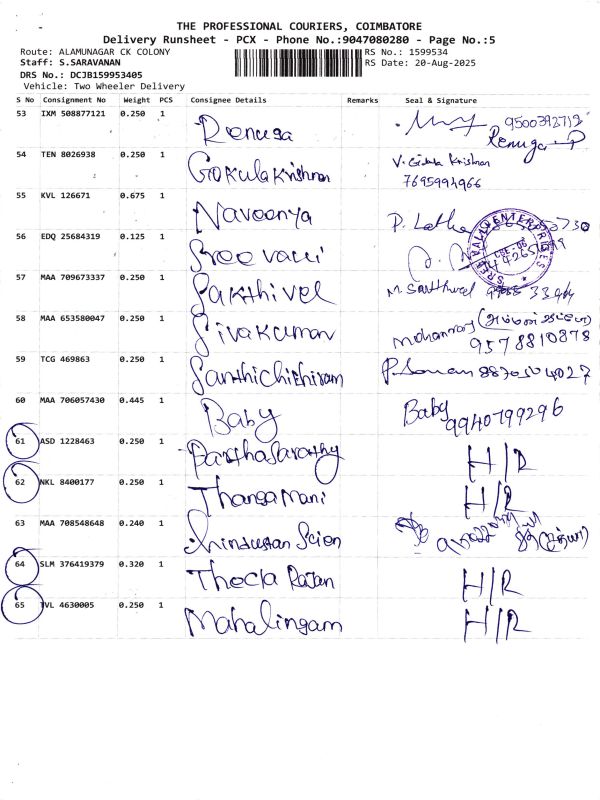 THE PROFESSIONAL COURIERS, COIMBATORE
Delivery Runsheet - PCX - Phone No.:9047080280 - Page No.:5
Route: ALAMUNAGAR CK COLONY RS No.: 1599534
Staff: S.SARAVANAN RS Date: 20-Aug-2025
DRS No.: DCJB159953405
Vehicle: Two Wheeler Delivery
S No Consignment No Weight PCS Consignee Details Remarks Seal & Signature
53 IXM 508877121 0.250 1 Renuga
Renuga
54 TEN 8026938 0.250 1 Gokulakrishnan V. Krishnan
7695994966
55 KVL 126671 0.675 1 Navoonya P. Latha
56 EDQ 25684319 0.125 1 Sree vani
57 MAA 709673337 0.250 1 Sakthivel M.
58 MAA 653580047 0.250 1 Sivakumar
9578810878
59 TCG 469863 0.250 1
60 MAA 706057430 0.445 1 Baby Baby
9940799296
61 ASD 1228463 0.250 1 Parthasarathy H/R
62 NKL 8400177 0.250 1 Thangamani H/R
63 MAA 708548648 0.240 1 Hindustan
64 SLM 376419379 0.320 1 Thocla Rajan H/R
65 TVL 4630005 0.250 1 Mahalingam H/R